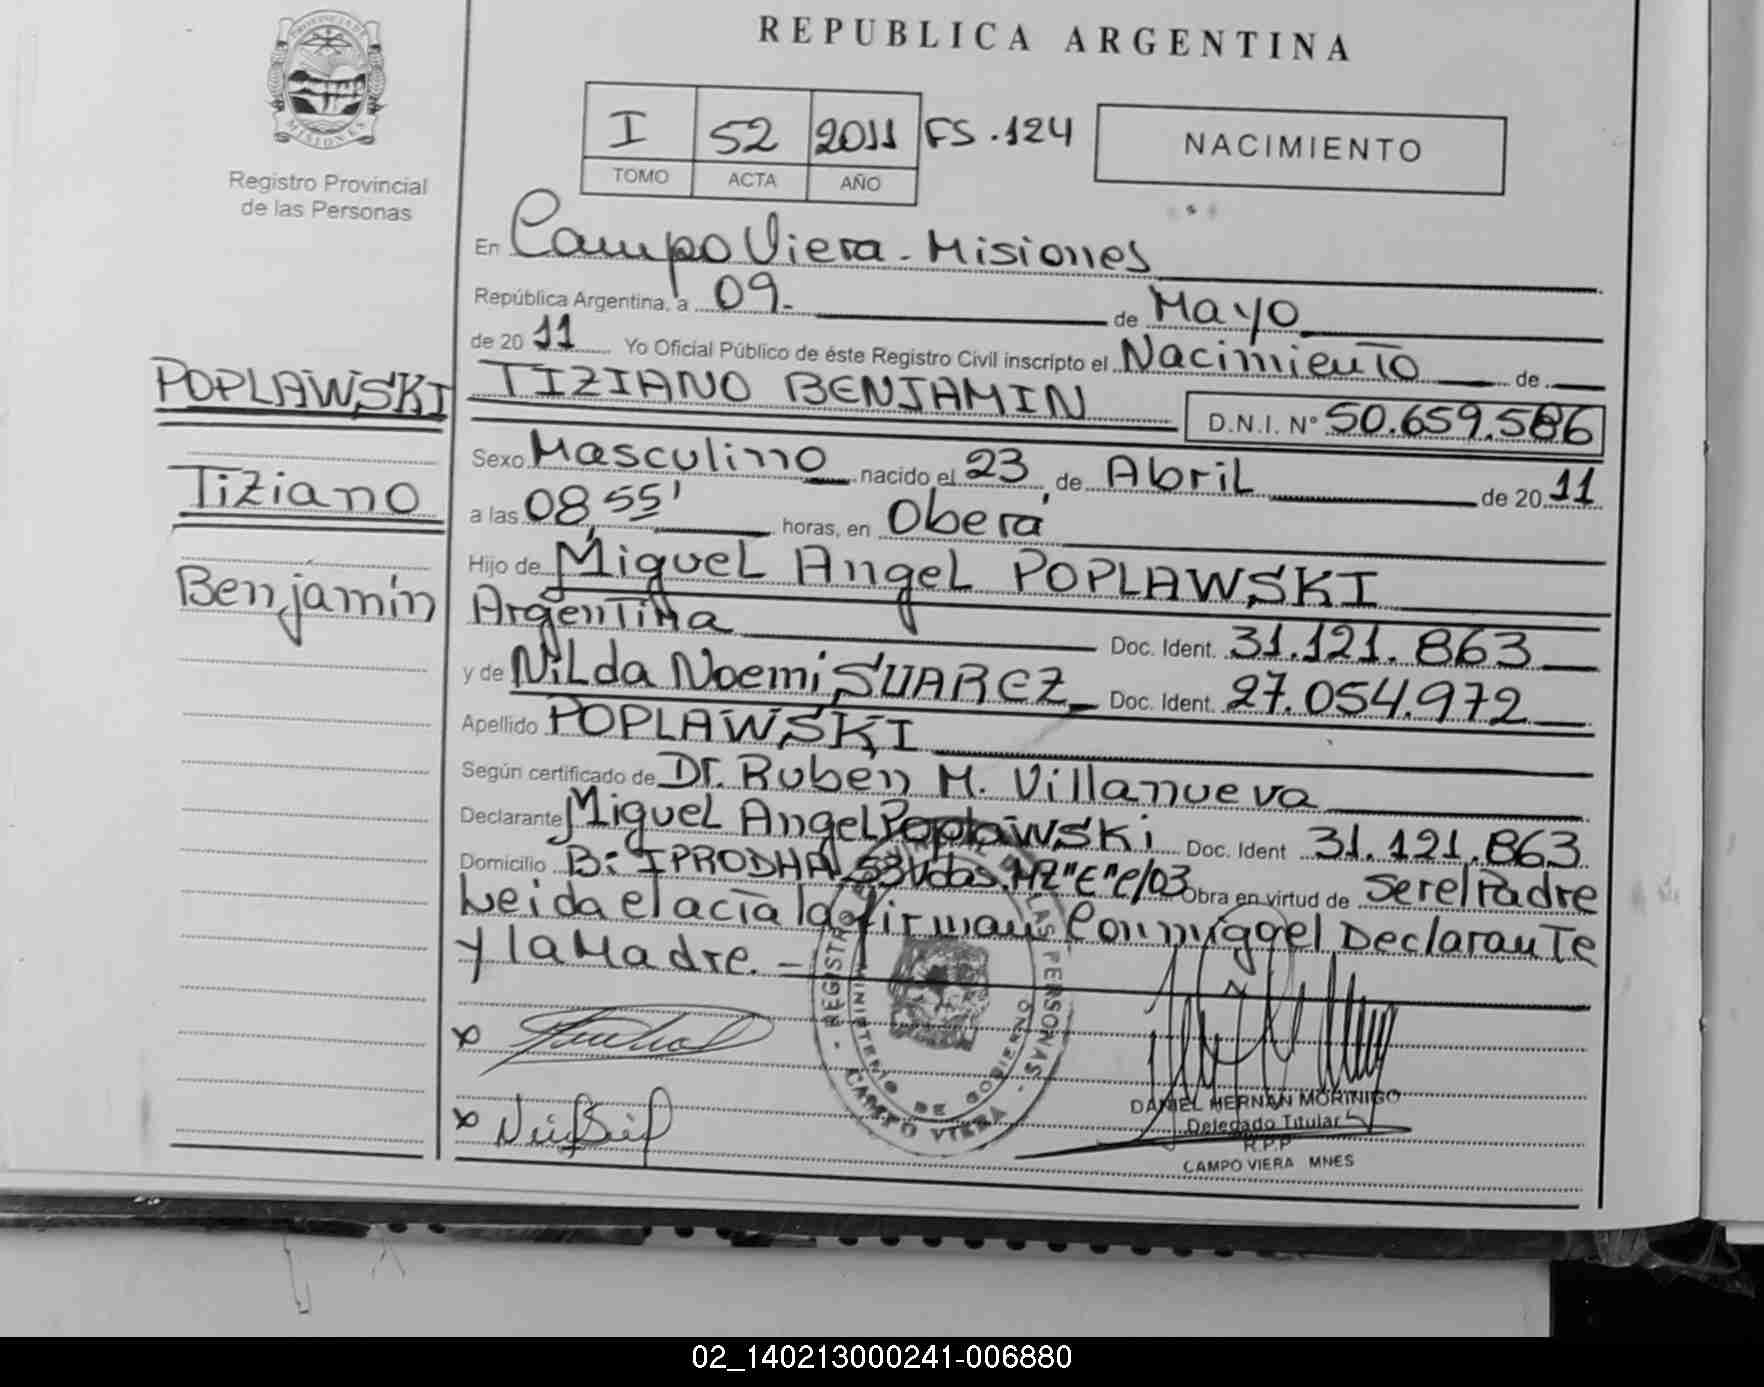 PROVINCIA DE
MISIONES
Registro Provincial
de las Personas
POPLAWSKI
Tiziano
Benjamín
REPUBLICA ARGENTINA
I 52 2011 FS.124
TOMO ACTA AÑO
NACIMIENTO
En Campo Viera - Misiones
República Argentina, a 09.- de Mayo
de 20 11 Yo Oficial Público de éste Registro Civil inscripto el Nacimiento de
TIZIANO BENJAMIN D.N.I. Nº 50.659.586
Sexo Masculino nacido el 23 de Abril de 20 11
a las 08,55' horas, en Oberá
Hijo de Miguel Angel POPLAWSKI
Argentina Doc. Ident. 31.121.863
y de Nilda Noemi SUAREZ Doc. Ident. 27.054.972
Apellido POPLAWSKI
Según certificado de Dr. Ruben M. Villanueva
Declarante Miguel Angel Poplawski Doc. Ident 31.121.863
Domicilio B: IPRODHA 53 Vdas. MZ "E" C/03 Obra en virtud de ser el Padre
Leida el acta la firman Conmiggo el Declarante
y la Madre. -
REGISTRO DE LAS PERSONAS
MINISTERIO DE GOBIERNO
CAMPO VIERA
x
x
DANIEL HERNAN MORINIGO
Delegado Titular
R.P.P
CAMPO VIERA MNES
02_140213000241-006880